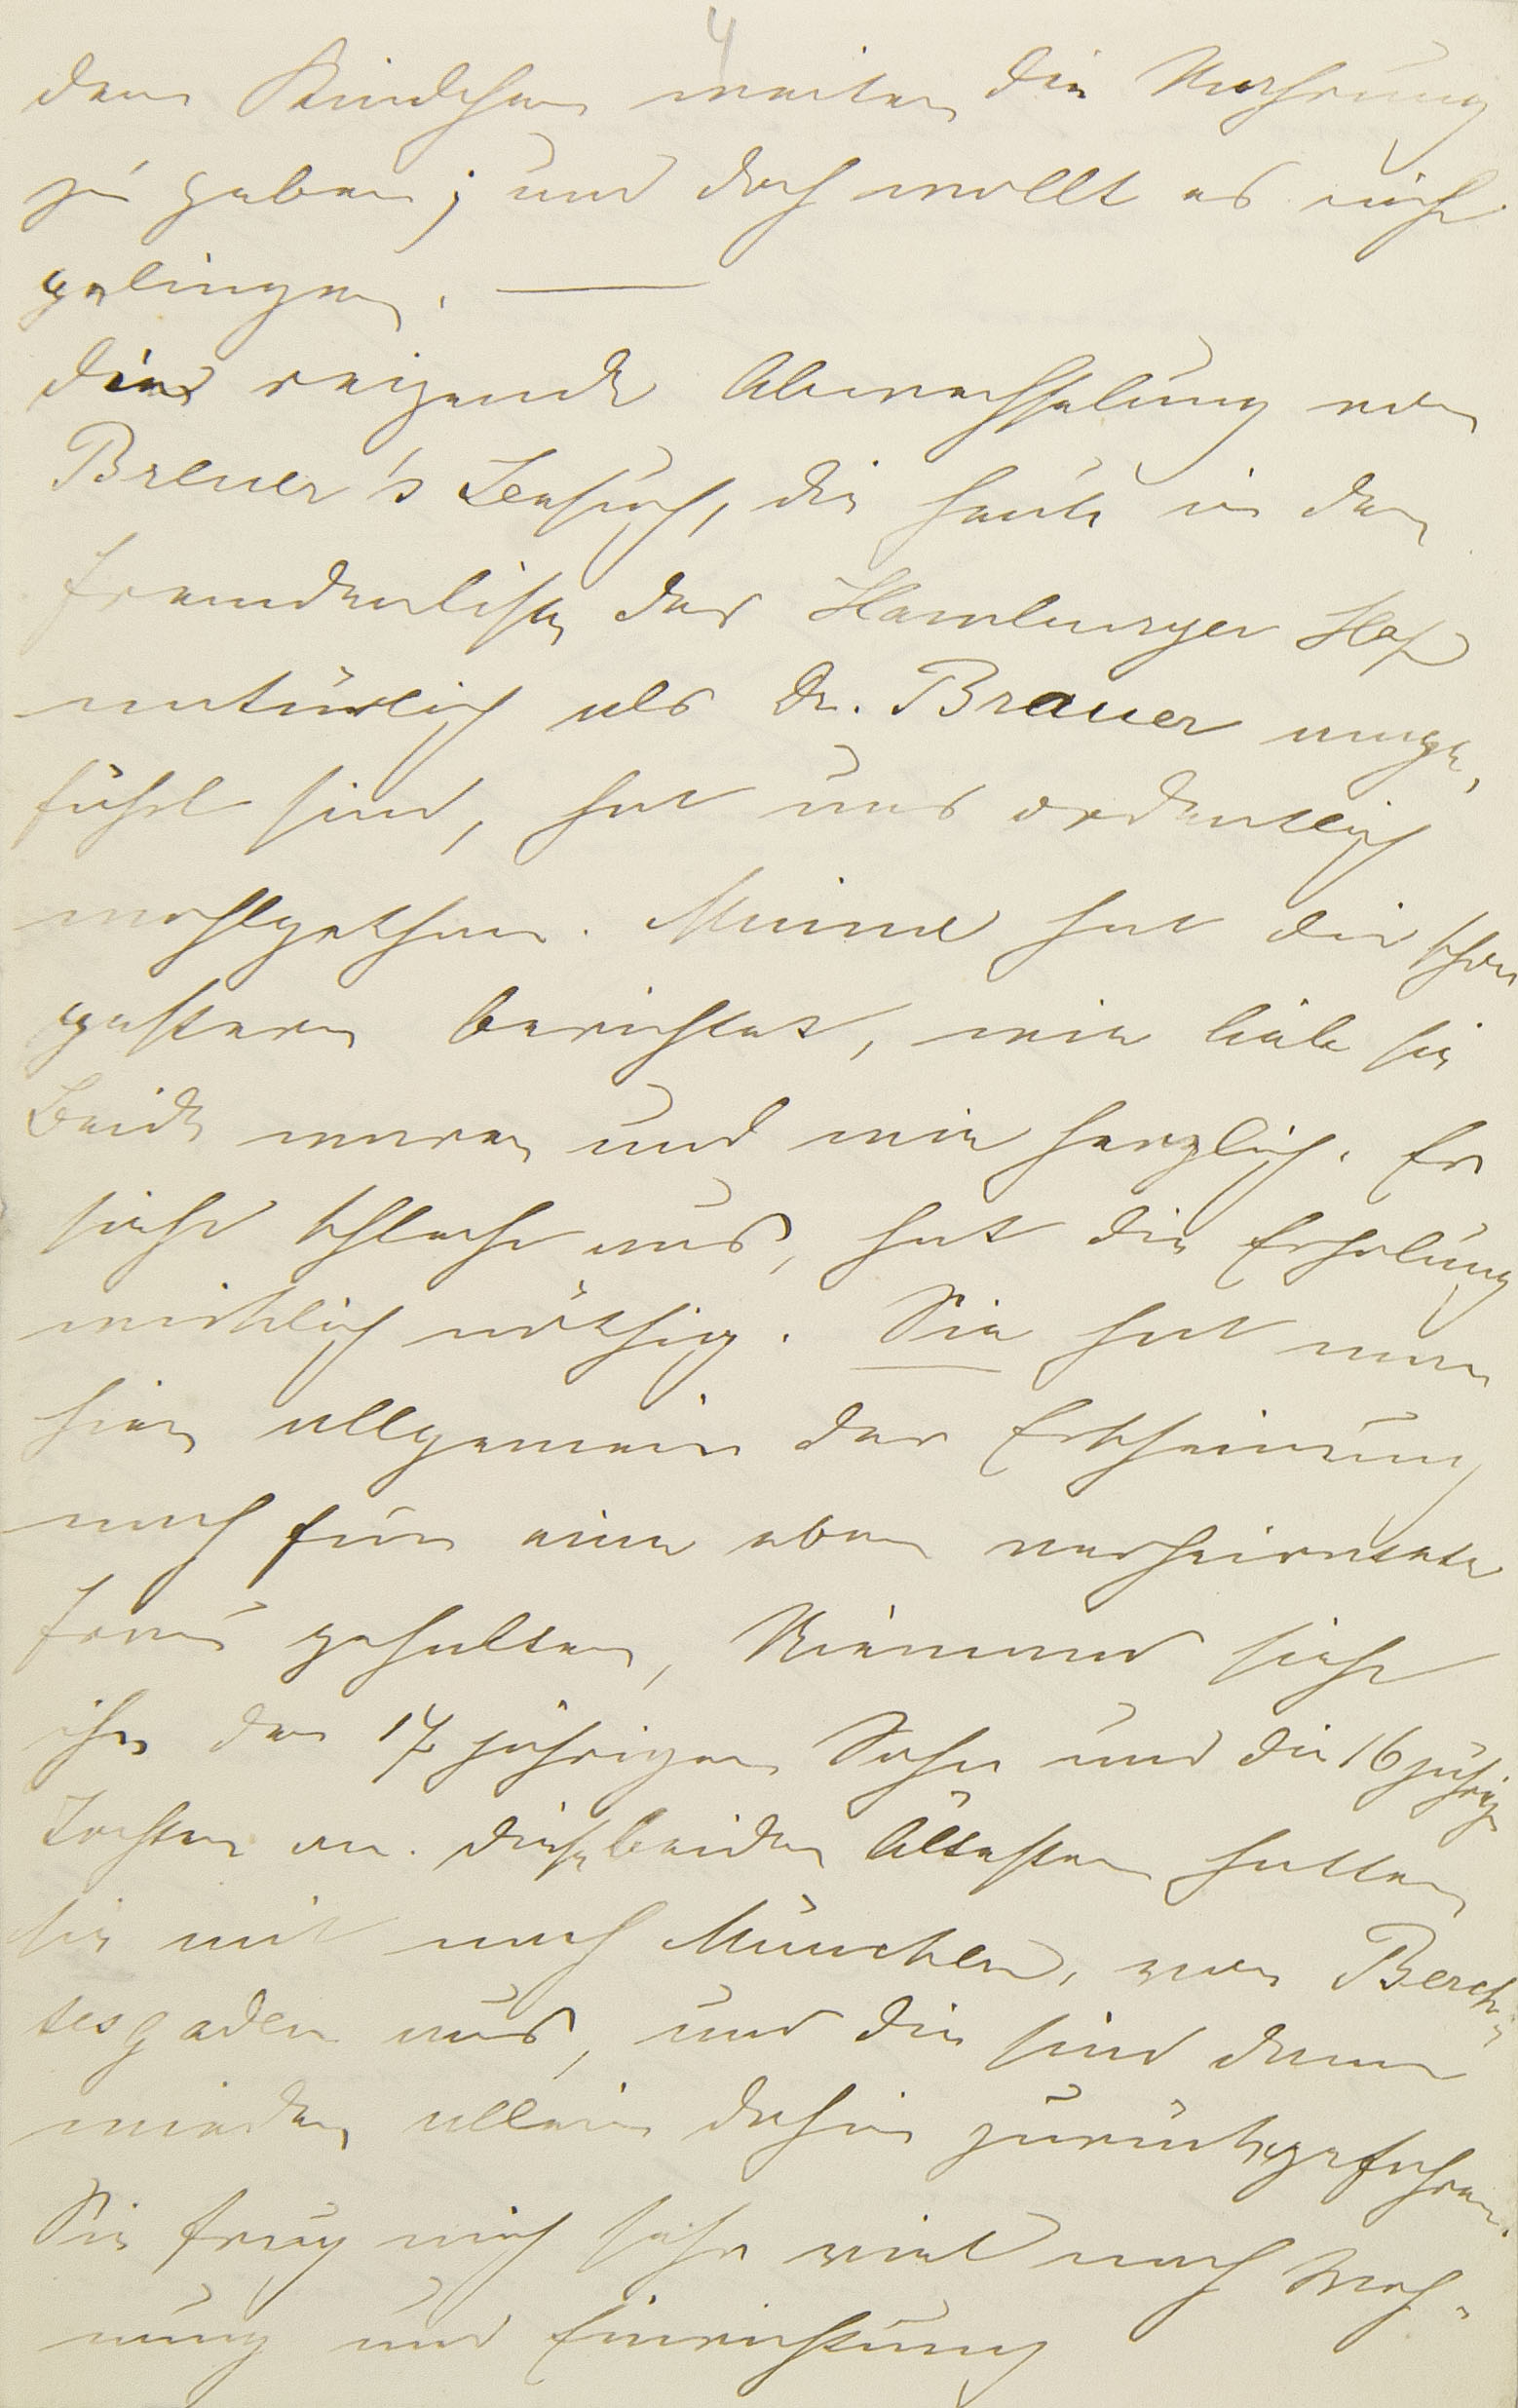 4
dem Kindchen weiter die Nahrung
zu geben; und doch wollt es nicht
gelingen. —
Die reizende Abwechselung von
Breuer's Besuch, die heute in der
Fremdenliste des Hamburger Hof
natürlich als Dr. Brauer ange,
führt sind, hat uns ordentlich
wohlgethan. Minna hat dir schon
gestern berichtet, wie liebe sie
Beide waren und wie herzlich. Er
sieht schlecht aus, hat die Erholung
wirklich nöthig. Sie hat man
hier allgemein der Erscheinung
nach für eine eben verheiratete
Frau gehalten, Niemand sieht
ihr den 17 jährigen Sohn und die 16 jährige
Tochter an. Diese beiden Ältesten hatten
sie mit nach München, von Berch-
tesgaden aus, und die sind dann
wieder allein dahin zurückgefahren.
Sie frug mich sehr viel nach Woh-
nung und Einrichtung